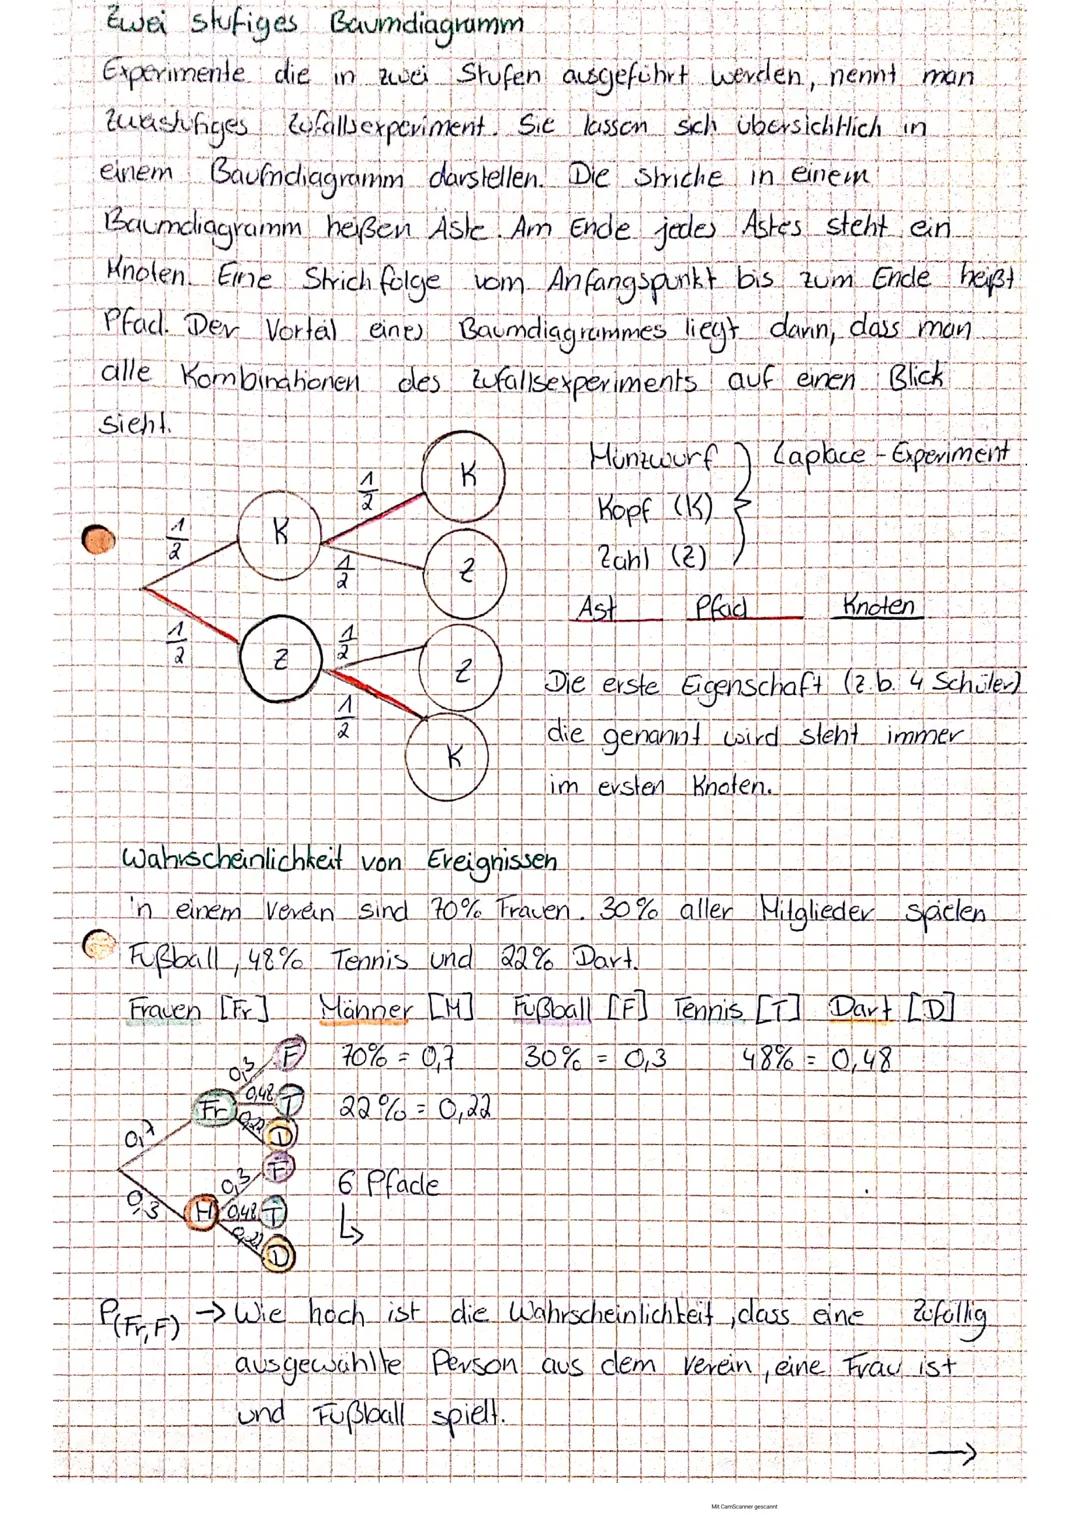 Zwei stufiges Baumdiagramm
Experimente die in zwei Stufen ausgeführt werden, nennt man
zweistufiges Zufallsexperiment. Sie lassen sich übersichtlich in
einem Baumdiagramm darstellen. Die Striche in einem
Baumdiagramm heißen Äste. Am Ende jedes Astes steht ein
Knoten. Eine Strichfolge vom Anfangspunkt bis zum Ende heißt
Pfad. Der Vorteil eines Baumdiagrammes liegt darin, dass man
alle Kombinationen des Zufallsexperiments auf einen Blick
sieht.
1/2 K 1/2 K
1/2 Z
1/2 Z 1/2 Z
1/2 K
Münzwurf } Laplace-Experiment
Kopf (K)
Zahl (Z)
Ast Pfad Knoten
Die erste Eigenschaft (z.b. 4 Schüler)
die genannt wird steht immer
im ersten Knoten.
Wahrscheinlichkeit von Ereignissen
'n einem Verein sind 70% Frauen. 30% aller Mitglieder spielen
Fußball, 48% Tennis und 22% Dart.
Frauen [Fr] Männer [M] Fußball [F] Tennis [T] Dart [D]
70% = 0,7 30% = 0,3 48% = 0,48
22% = 0,22
0,7 Fr 0,3 F
0,48 T
0,22 D
0,3 M 0,3 F
0,48 T
0,22 D
6 Pfade
↳
P(Fr,F) → Wie hoch ist die Wahrscheinlichkeit, dass eine zufällig
ausgewählte Person aus dem Verein, eine Frau ist
und Fußball spielt.
→
Mit CamScanner gescannt